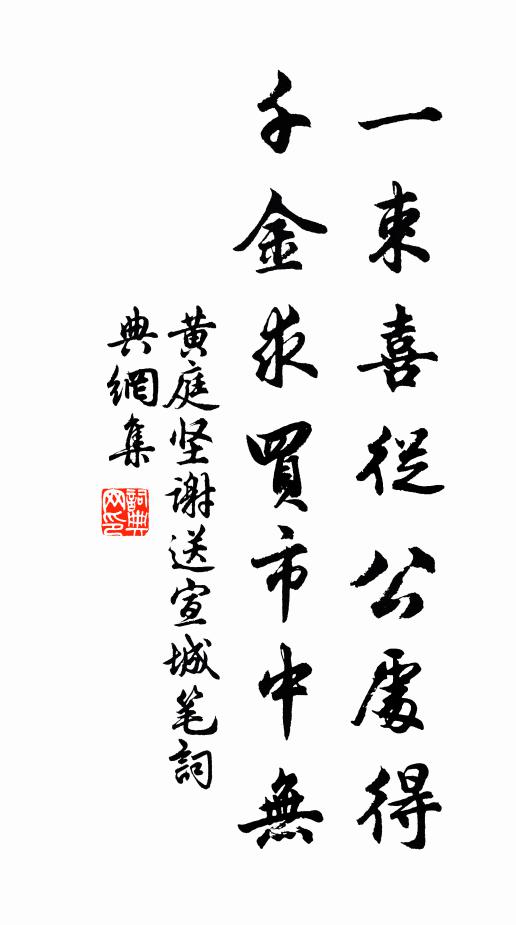 一束喜從公處得
千金求買市中無
黄庭坚謝送宣城笔詞
典網集
詞典
网印